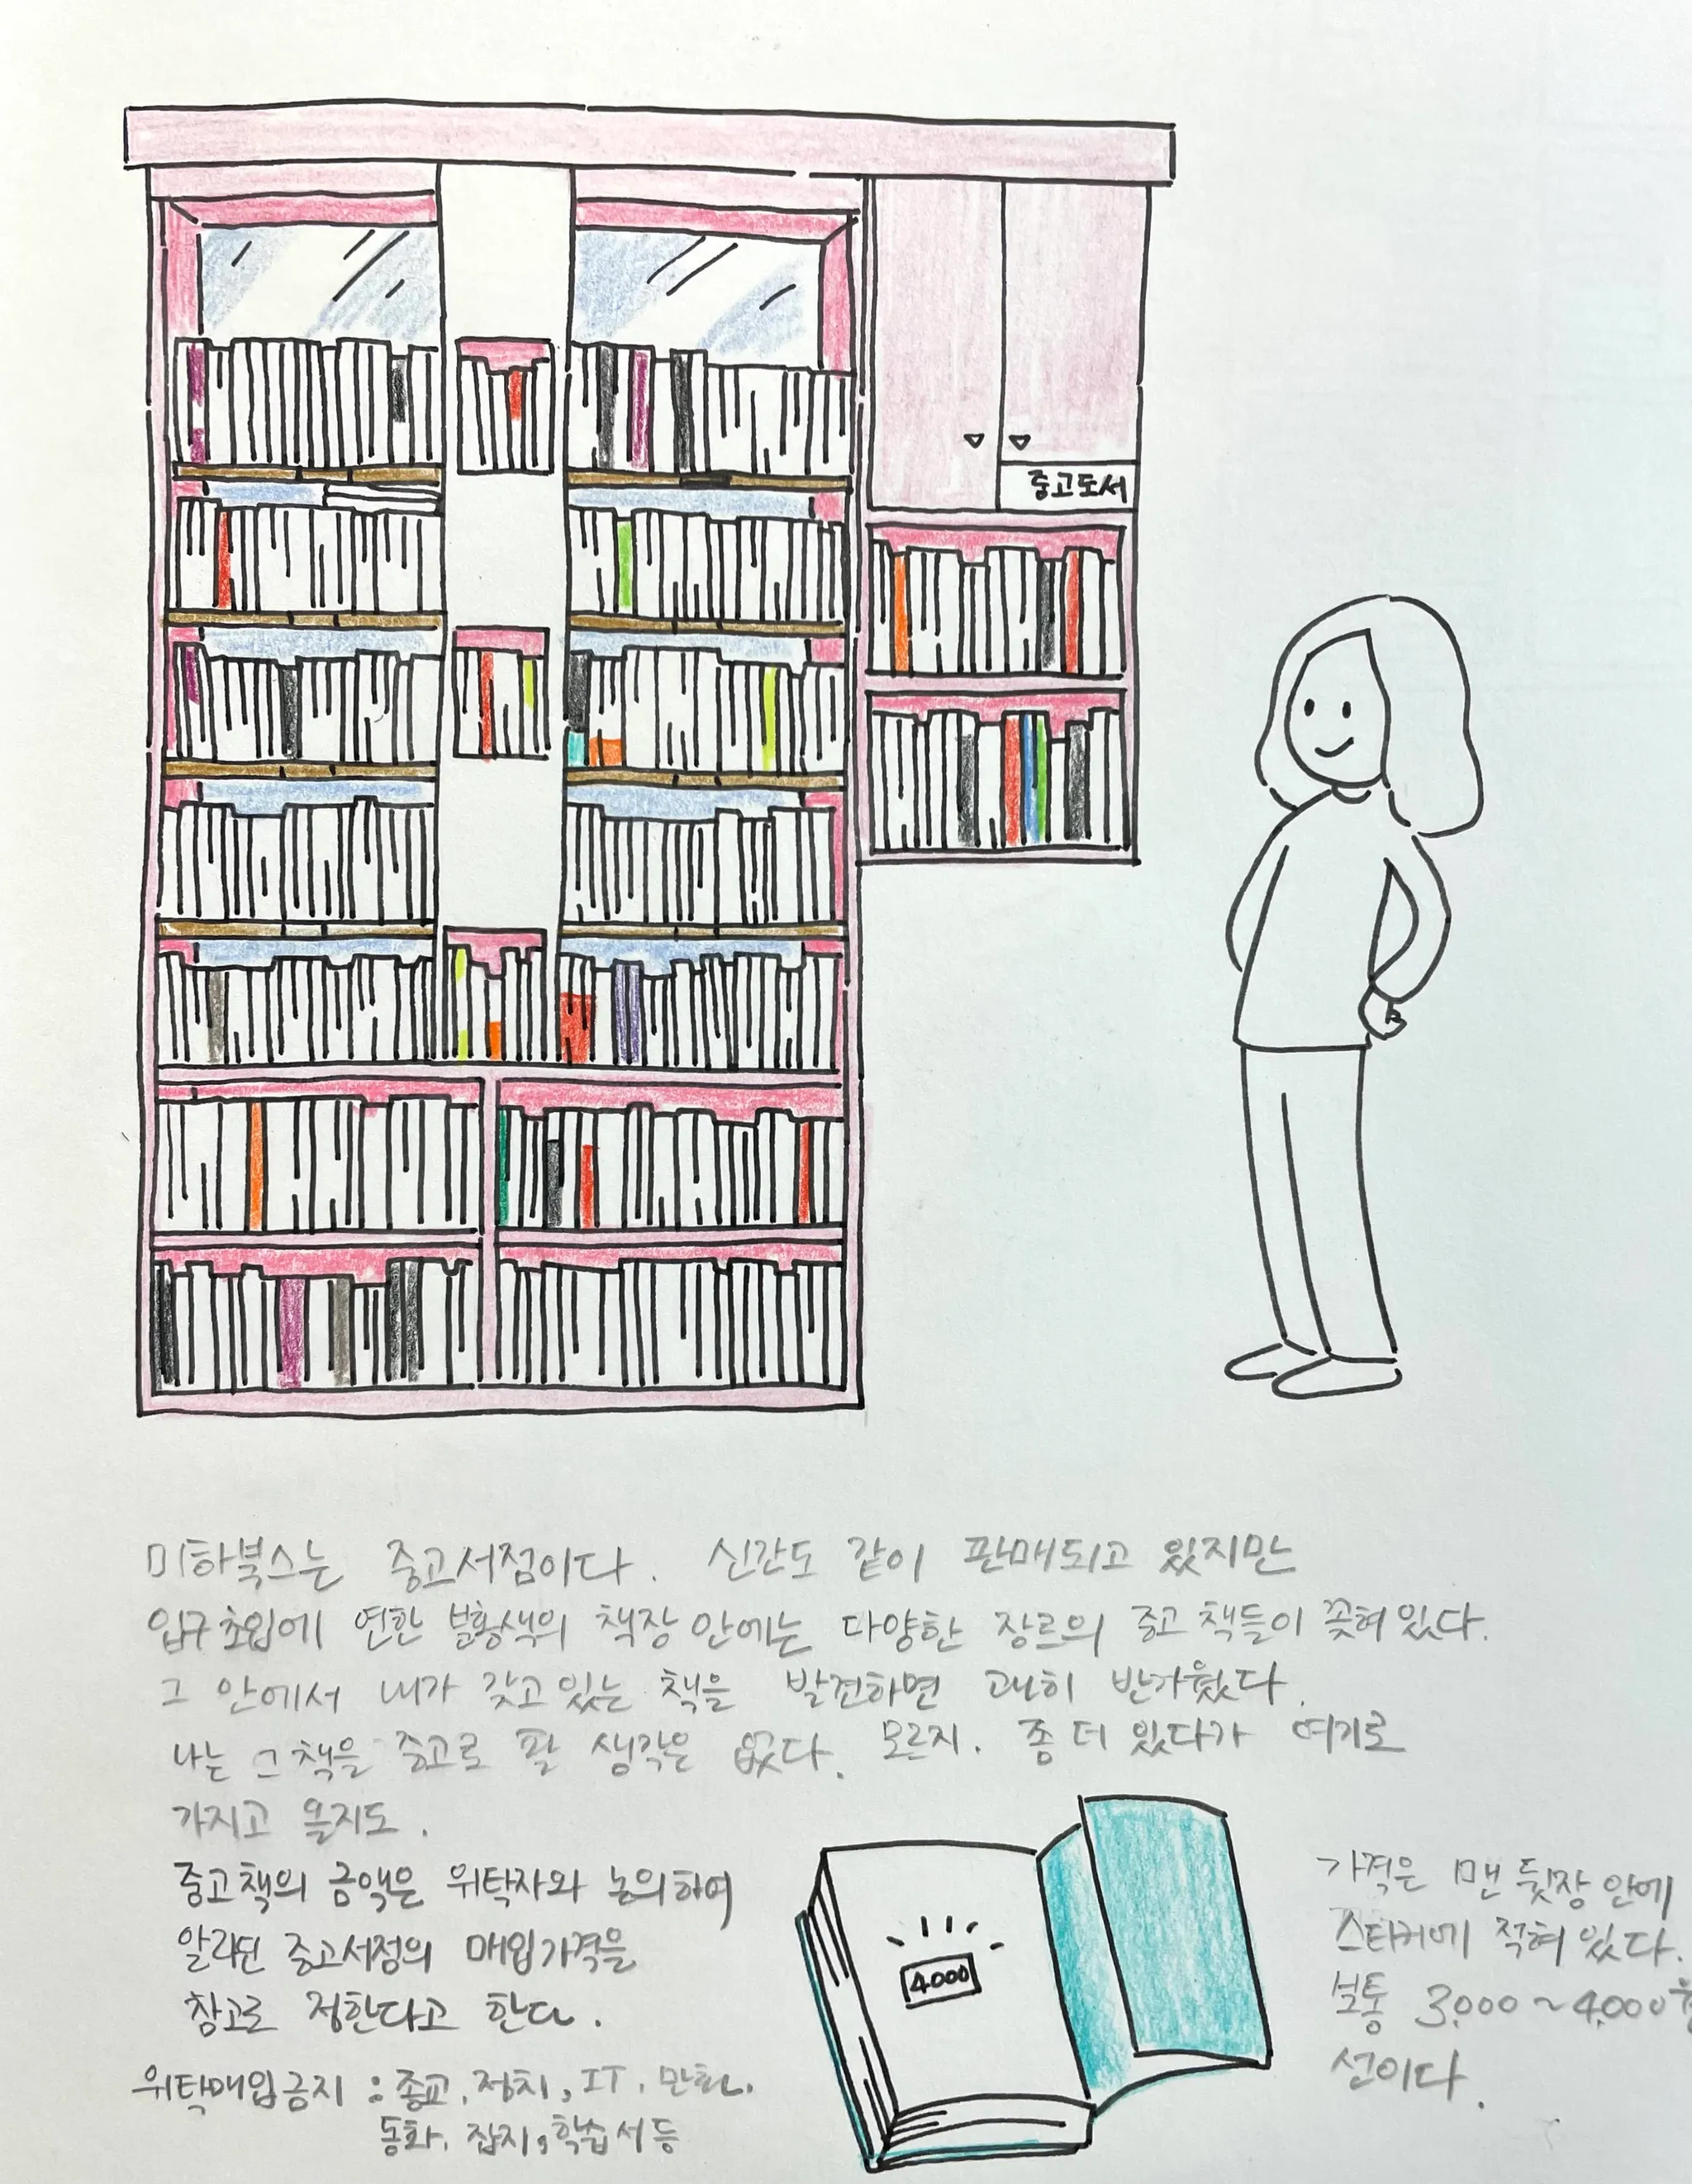 중고도서
미하북스는 중고서점이다. 신간도 같이 판매되고 있지만
입구 초입에 연한 분홍색의 책장 안에는 다양한 장르의 중고 책들이 꽂혀있다.
그 안에서 내가 갖고 있는 책을 발견하면 괜히 반가웠다.
나는 그 책을 중고로 팔 생각은 없다. 모르지. 좀 더 있다가 여기로
가지고 올지도.
중고책의 금액은 위탁자와 논의하여
알라딘 중고서점의 매입가격을
참고로 정한다고 한다.
위탁매입금지 : 종교, 정치, IT, 만화,
동화, 잡지, 학습서 등
4000
가격은 맨 뒷장 안에
스티커에 적혀 있다.
보통 3,000~4,000원
선이다.